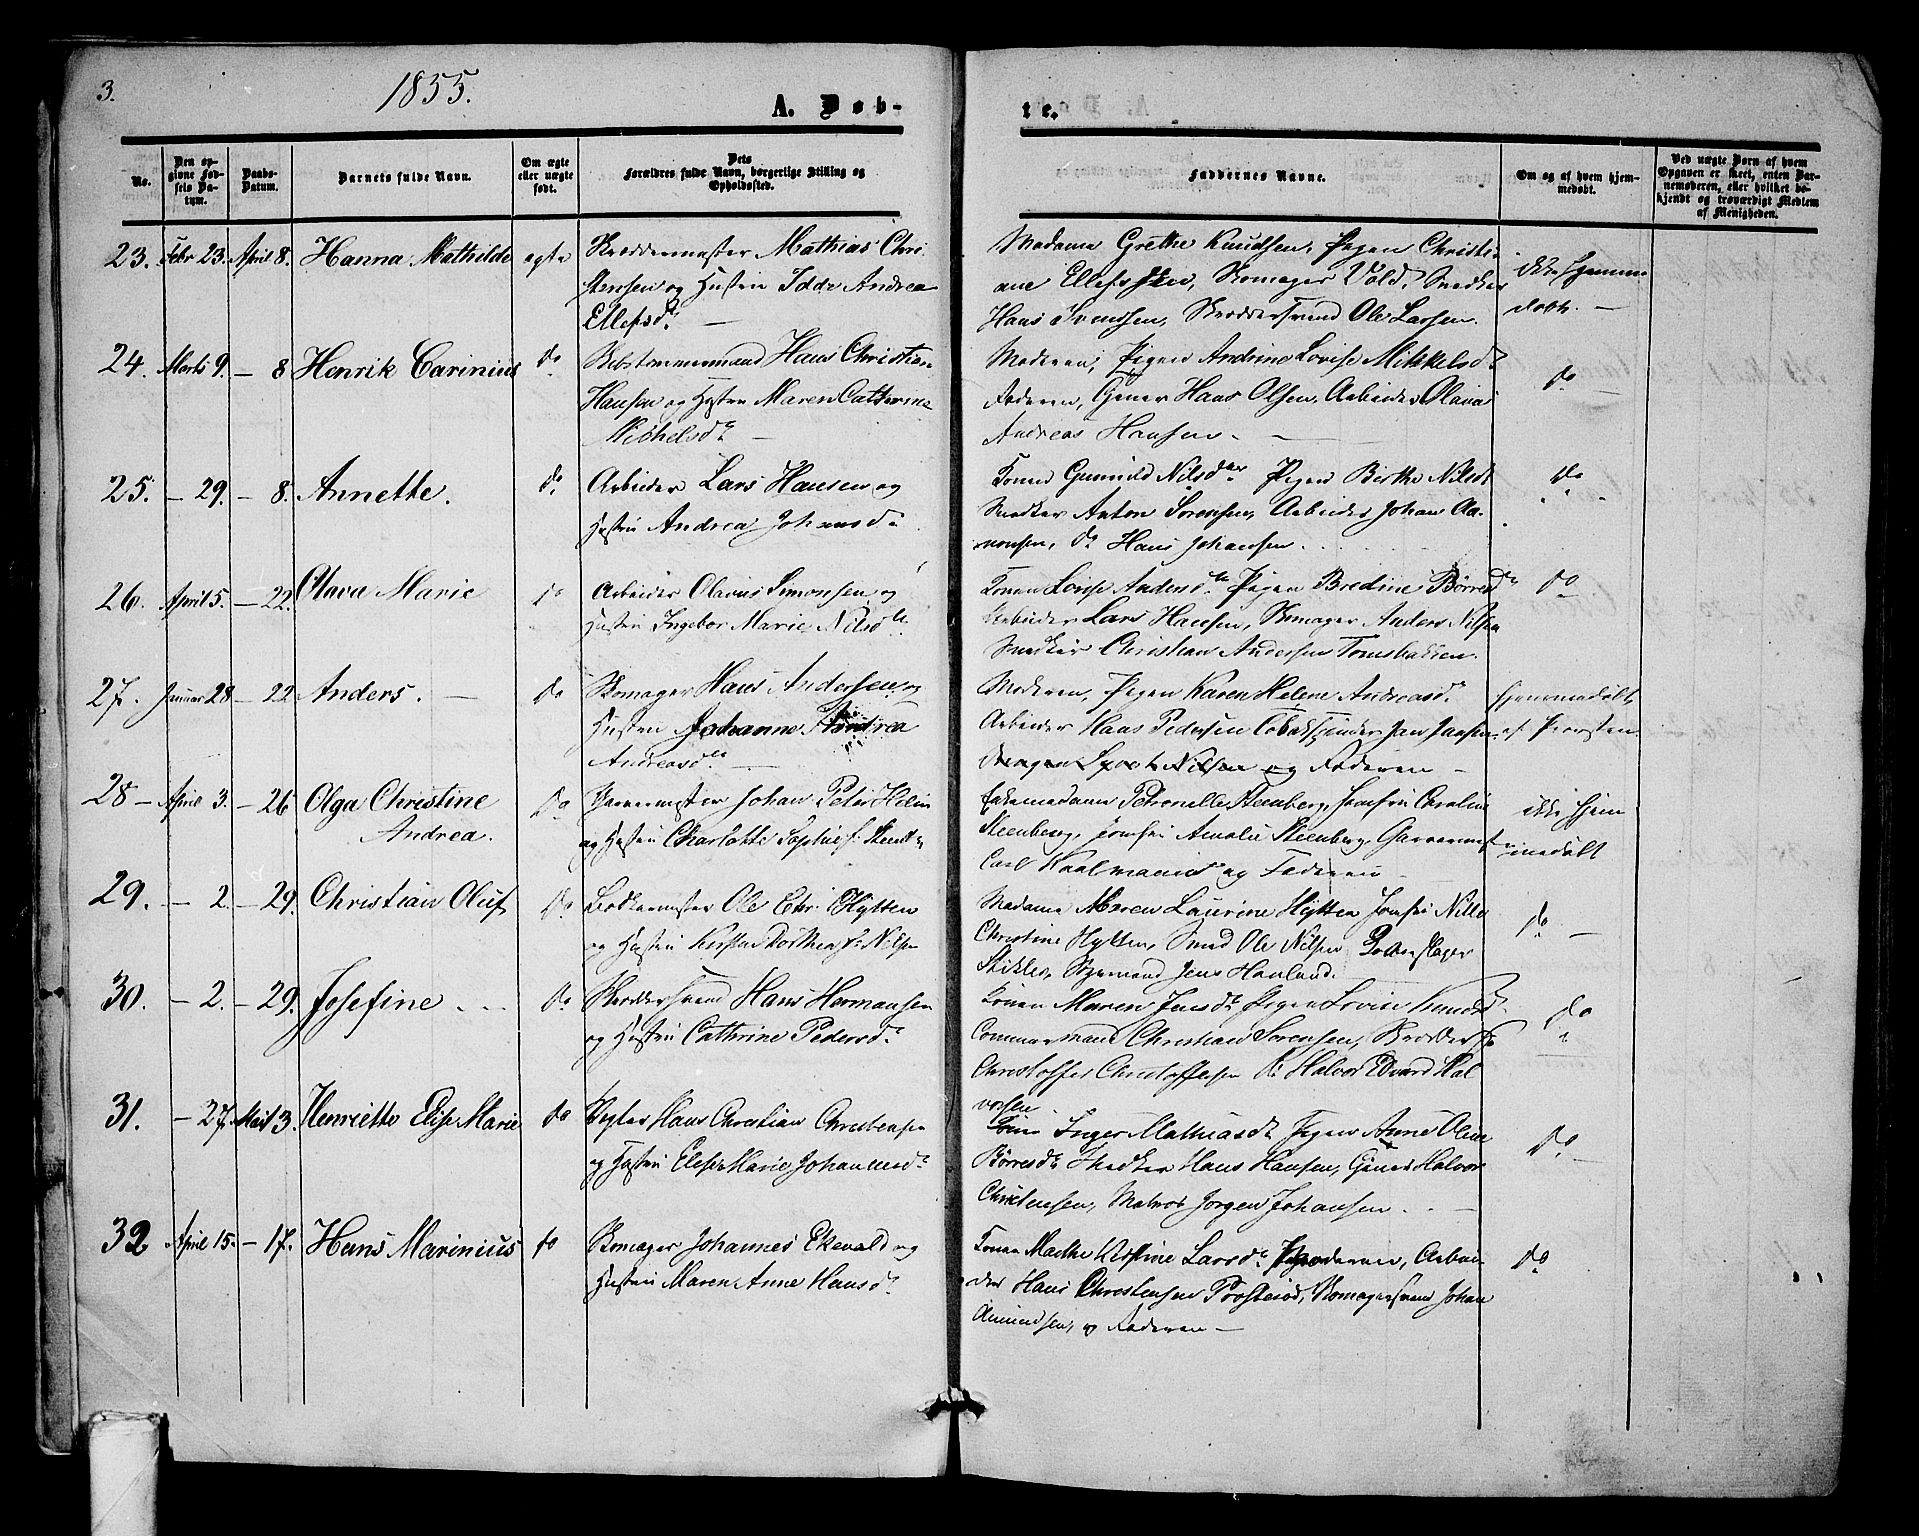 3.
1855.
A. Døb-
te.
No.
Den opgivne Fødsels Datum.
Daabs-Datum.
Barnets fulde Navn.
Om ægte eller uægte født.
Dets Forældres fulde Navn, borgerlige Stilling og Opholdssted.
Faddernes Navne.
Om og af hvem hjemmedøbt.
Ved uægte Børn af hvem Opgaven er skeet, enten Barnemoderen, eller hvilket bekjendt og troværdigt Medlem af Menigheden.
23. Febr 23. April 8. Hanna Mathilde ægte
Skreddermester Mathias Chri
stensen og Hustru Idde Andrea
Ellefsd.
Madame Grethe Knudsen, Pigen Christi
ane Ellefs, Skomager Vold, Snedker
Hans Svendsen, Skreddersvend Ole Larsen.
ikke hjemme
døbt. —
24. Marts 9. — 8 Henrik Carinius do
Hans Christian
Hansen og Hustru Maren Cathrine
Michelsd
Moderen, Pigen Andrine Lovise Mikkelsd
Faderen, Hans Olsen, Arbeider Olaus
Andreas Hansen. —
do —
25. — 29. — 8. Annette. do
Arbeider Lars Hansen og
Hustru Andrea Johansd
Konen Gunnild Nilsd Pigen Birthe Nilsd
Snedker Anton Sørensen, Arbeider Johan Aa-
nonsen, do Hans Johansen.
do
26. April 5. — 22. Olava Marie do
Arbeider Olavus Simonsen og
Hustru Ingebor Marie Nilsd
Konen Lovise Andersd Pigen Bredine Børresd
Arbeider Lars Hansen, Skomager Anders Nilsen
Snedker Christian Andersen Tomsbakken.
do
27. Januar 28 — 22 Anders. — do
Skomager Hans Andersen og
Hustru Johanne Andrea
Andreasd —
Moderen, Pigen Karen Helene Andreasd
Arbeider Hans Pedersen Jan Jansen
Nilsen og Faderen —
hjemmedøbt
af Provsten
28 — April 3. — 26 Olga Christine
Andrea. do
Garvermester Johan Peter
og Hustru Charlotte Sophie f.
Enkemadame Petronelle Steenberg, Jomfru Caroline
Steenberg, Jomfru Amalie Steenberg, Garvermest
Carl og Faderen —
ikke hjem
medøbt
29. — 2. — 29. Christian Oluf do
Bødkermester Ole Chr. Hytten
og Hustru Dorthea f. Nilsen
Madame Maren Laurine Hytten Jomfru Nille
Christine Hytten, Ole Nilsen
Jens Hauland.
do —
30. — 2. — 29. Josefine do
Skreddersvend Hans Hermansen
og Hustru Cathrine Pedersd
Konen Maren Jensd Pigen Lovise Knudsd
Christian Sørensen, Skredder
Christoffer Christoffersen Halvor Edvard Hal
vorsen
do
31. — 27. Mai 3. Henriette Elise Marie do
Hans Christian Christensen
og Hustru Elise Marie Johannesd
Konen Inger Mathiasd Pigen Anne Oline
Børresd Snedker Hans Hansen, Halvor
Christensen, Matros Jørgen Johansen. —
do —
32 April 15. — 17. Hans Marinius do
Skomager Johannes Ekevald og
Hustru Maren Anne Hansd
Konen Larsd Moderen, Arbei
der Hans Christensen Skomagersvend Johan
Amundsen, og Faderen —
do